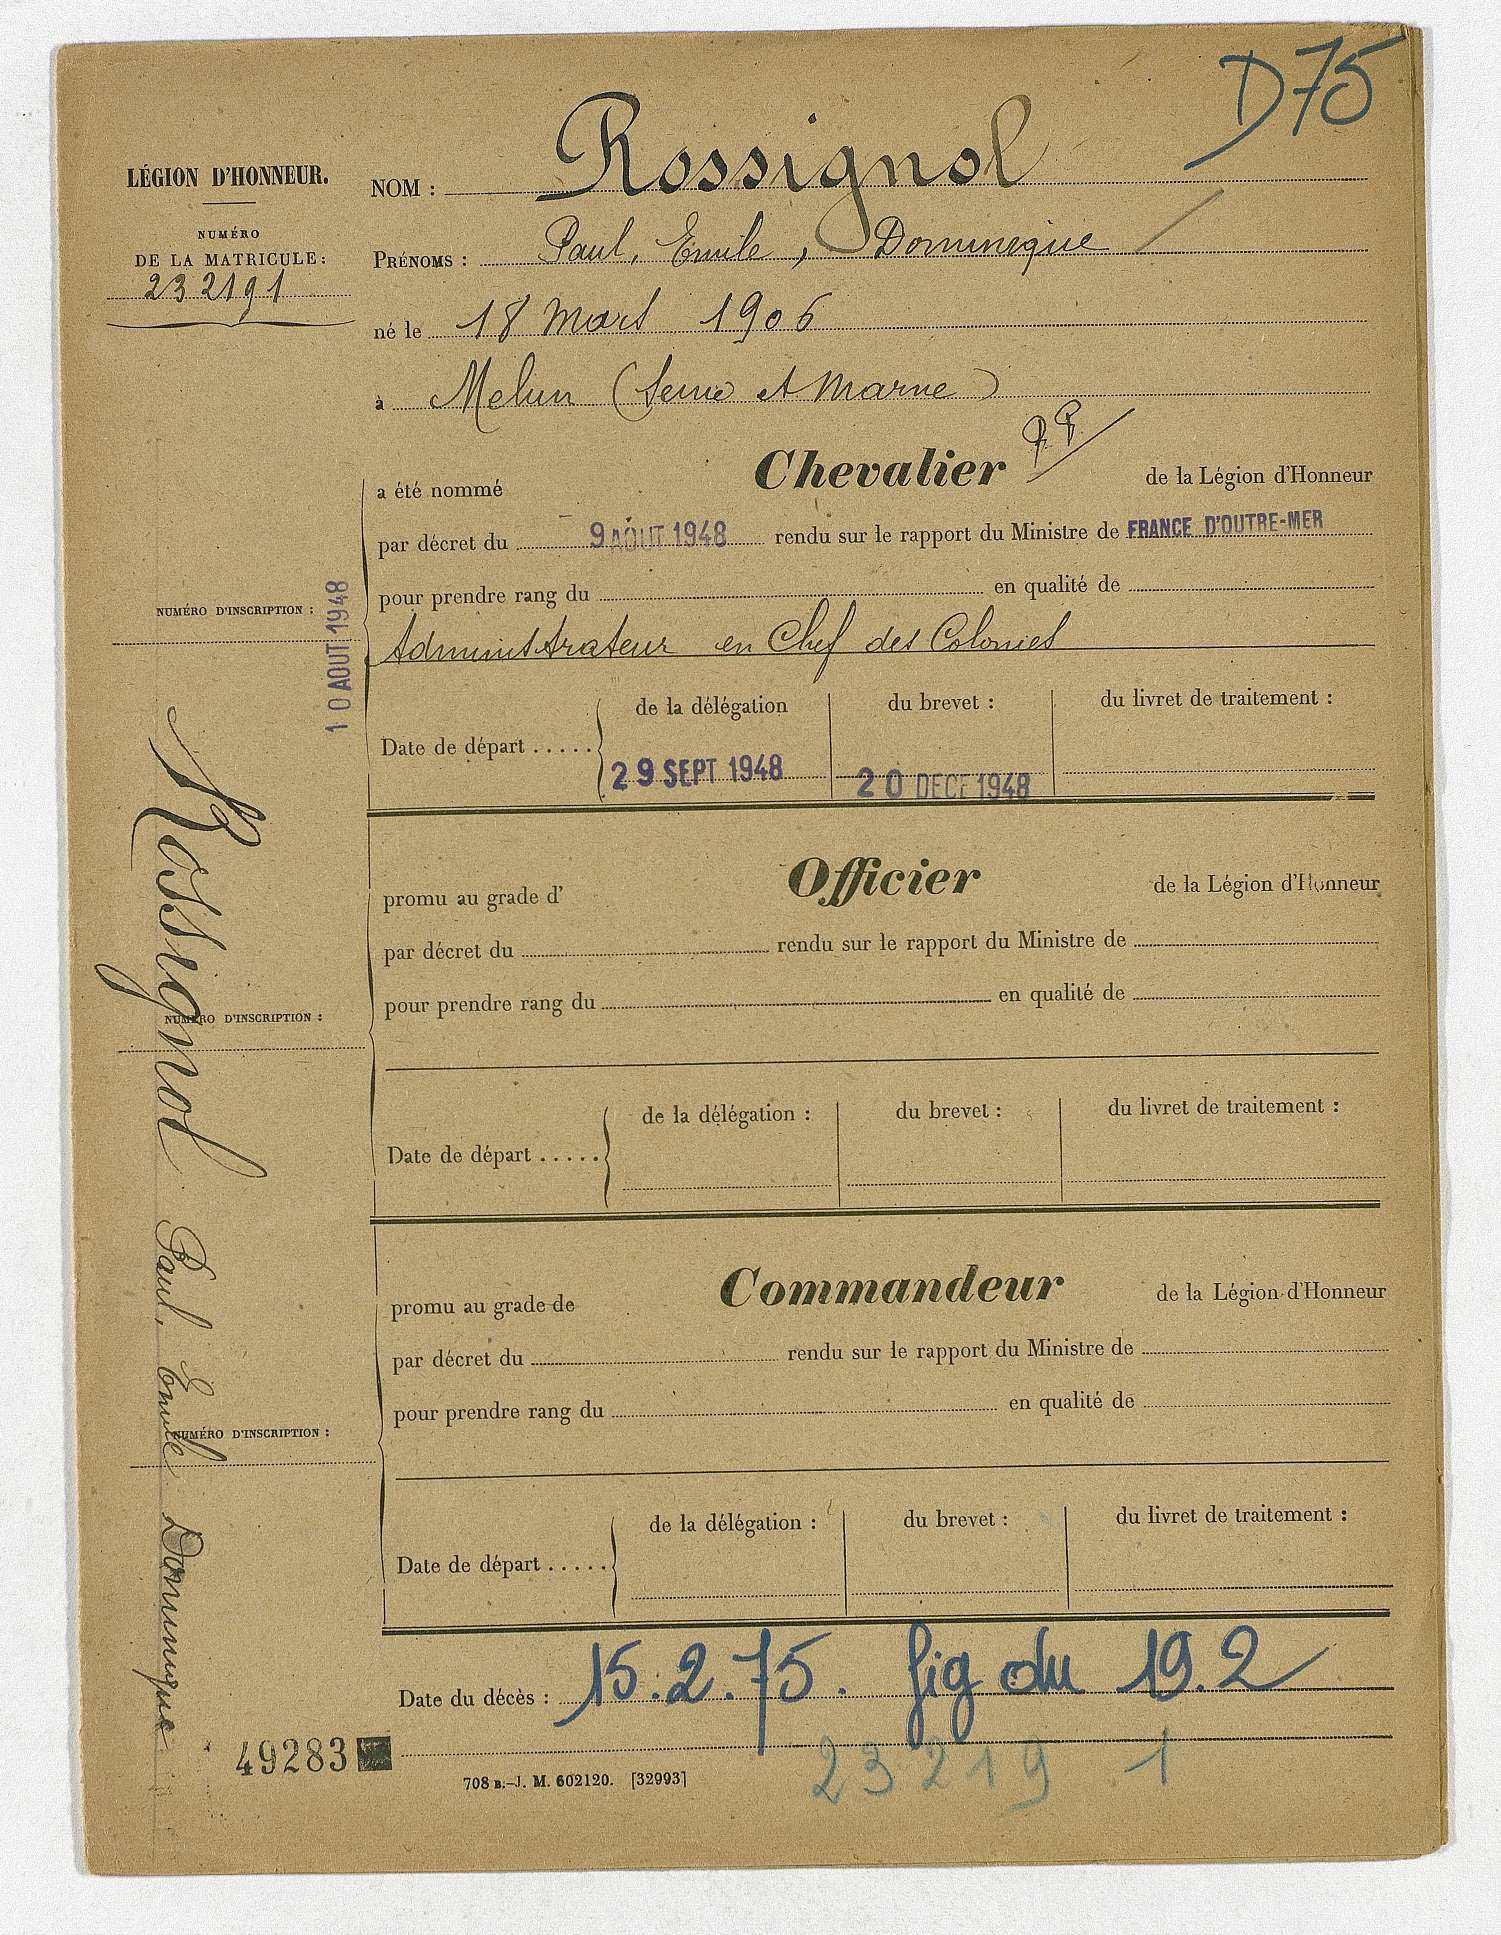 D75
LÉGION D'HONNEUR.
NUMÉRO
DE LA MATRICULE:
232191
NOM : Rossignol
PRÉNOMS : Paul, Emile, Dominique
né le 18 Mars 1906
à Melun (Seine et Marne)
a été nommé Chevalier de la Légion d'Honneur
par décret du 9 AOUT 1948 rendu sur le rapport du Ministre de FRANCE D'OUTRE-MER
pour prendre rang du en qualité de
Administrateur en Chef des Colonies
NUMÉRO D'INSCRIPTION :
10 AOUT 1948
de la délégation du brevet : du livret de traitement :
Date de départ .....
29 SEPT 1948 20 DECE 1948
promu au grade d' Officier de la Légion d'Honneur
par décret du rendu sur le rapport du Ministre de
pour prendre rang du en qualité de
NUMÉRO D'INSCRIPTION :
de la délégation : du brevet : du livret de traitement :
Date de départ .....
promu au grade de Commandeur de la Légion d'Honneur
par décret du rendu sur le rapport du Ministre de
pour prendre rang du en qualité de
NUMÉRO D'INSCRIPTION :
de la délégation : du brevet : du livret de traitement :
Date de départ .....
Rossignol Paul, Emile Dominique
Date du décès : 15.2.75. fig du 19.2
49283
708 B.-J. M. 602120. [32993]
23219 1